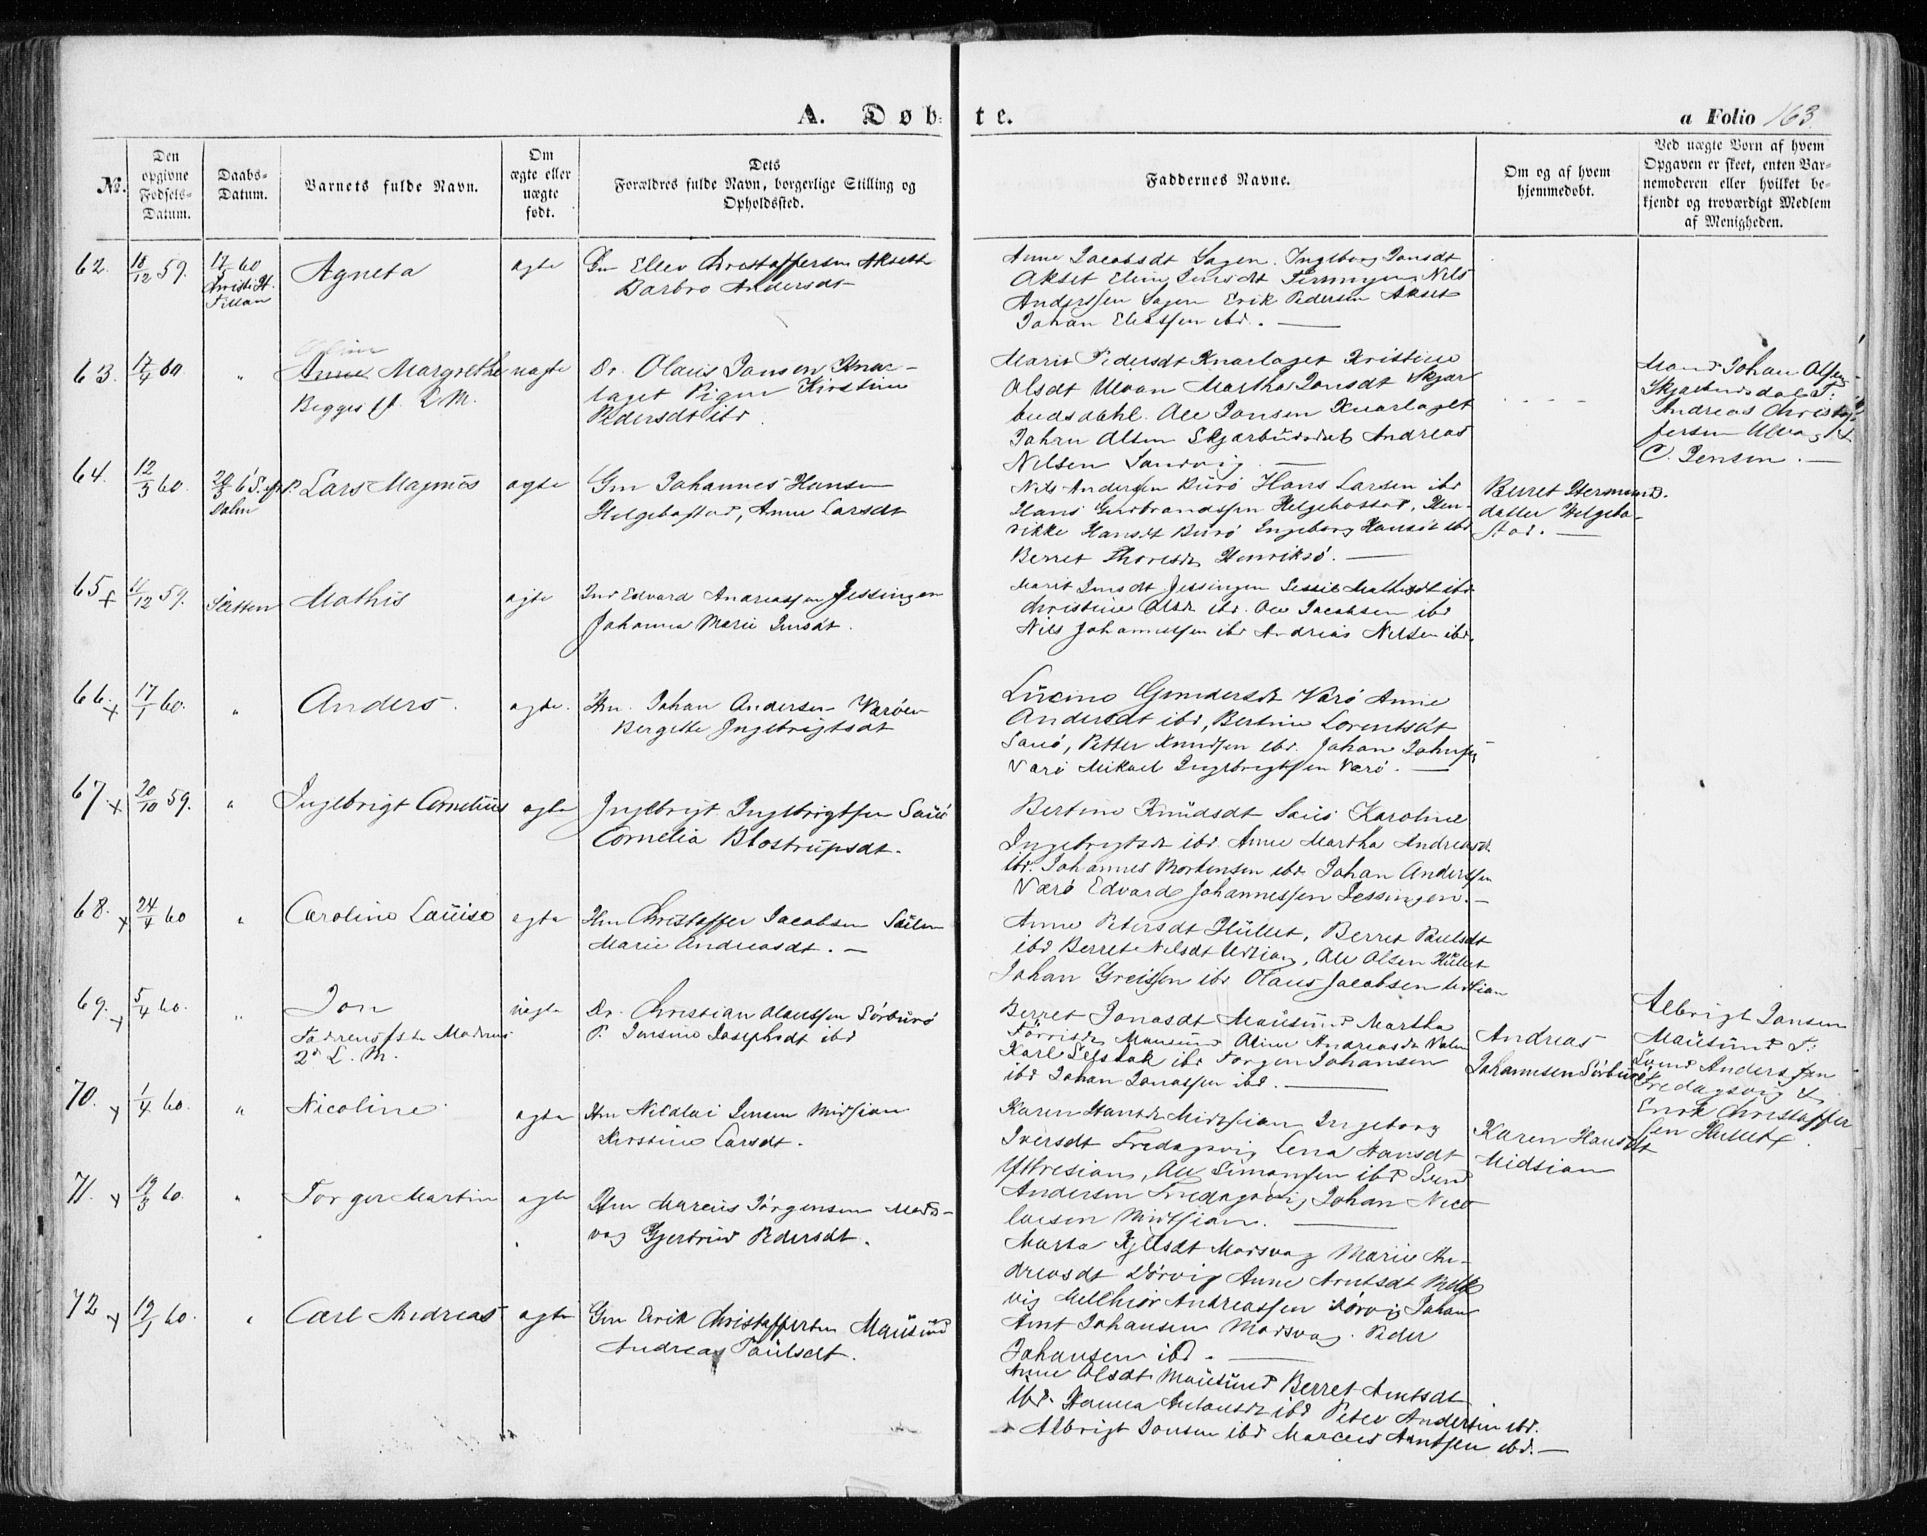 A. Døb-te.
a Folio 163
No.
Den opgivne Fødsels-Datum.
Daabs-Datum.
Barnets fulde Navn.
Om ægte eller uægte født.
Dets Forældres fulde Navn, borgerlige Stilling og Opholdssted.
Faddernes Navne.
Om og af hvem hjemmedøbt.
Ved uægte Born af hvem Opgaven er skeet, enten Barnemoderen eller hvilket bekjendt og troværdigt Medlem af Menigheden.
62. 18/12 59. 17/5 60 Christi H. Fillan
Agneta
ægte
Gm Ellev Christoffersen Aksett
Barbro Andersdt
Anne Jacobsdt Sagen. Ingeborg Jonsdt
Akset Elen Jensdt Nils
Anderssen Sagen Erik Pedersen Akset
Johan Eliassen ibd.
63. 17/4 60 "
Anne Margrethe
Begges 1st L. M.
uægte
Dr. Olaus Jansen Knar-
laget Pigen Kirstine
Pedersdt ibd
Marit Pedersdt Knarlaget Kristine
Olsdt Ulvan Martha Jonsdt Skjær
budsdahl. Ole Jansen Knarlaget
Johan Olsen Skjærbudsdal Andreas
Nilsen Sandvig
Mand Johan Olsen
Skjærbudsdal
Andreas Christof
fersen Ulvan
C. Jensen.
64. 12/3 60. Dolm
Lars Magnus
ægte
Gm Johannes Hansen
Helgebostad, Anne Larsdt
Nils Andersen Burø Hans Larsen ibd
Hans Gudbrandssen Helgebostad. Hen-
rikke Hansdt Burø Ingeborg Hansdt ibd
Berret Thoresdt Henriksø.
Beret Hermunds
datter Helgebo-
stad.
65 + 11/12 59. Sletten
Mathis
ægte
Ind Edvard Andreassen Jessingen
Johanna Marie Jensdt.
Marit Jensdt Jessingen Sessil Mathisdt ibd
Christine Olsdt ibd. Ole Jacobsen ibd
Nils Johannessen ibd Andreas Nilsen ibd.
66. + 17/1 60. "
Anders.
ægte.
Hm. Johan Andersen Værøen
Bergitte Ingebrigtsdt
Lusine Gundersdt Værø Anne
Andersdt ibd, Bertine Lorentsdt
Sauø, Petter Knudsen ibd. Johan Johnsen
Værø Mikael Ingebrigtsen Værø.
67. + 20/10 59. "
Ingebrigt Cornelius
ægte
Ingebrigt Ingebrigtsen Sauø
Cornelia Blostrupsdt.
Bertine Knudsdt Sauø Karoline
Ingebrigtsdt ibd. Anne Martha Andreasdt
ibd. Johannes Mortensen ibd Johan Anderssen
Værø Edvard Johannessen Jessingen.
68. + 24/4 60 "
Caroline Lauise
ægte
Hm Christoffer Jacobsen
Marie Andreasdt.
Anne Petersdt Hullet, Berret Paulsdt
ibd Berret Nilsdt Udtian, Ole Olsen Hullet
Johan Greissen ibd Olaus Jacobsen Udtian
69. + 5/4 60. "
Jon
Faderens 1ste Moderens
2d L. M.
uægte
Dr. Christian Olaussen Sørburø
P. Jonsine Josephsdt ibd
Berret Jonasdt Mausund Martha
Mausund Oline Andreasdt
Karl ibd Torger Johansen
ibd Johan Jonassen ibd.
Andreas
Johannesen Sørburø
Albrigt Jonsen
Mausund
Svend Anderssen
Fredagsvig &
Erik Christoffer
sen Hullet.
70. + 1/4 60. "
Nicoline
ægte
Hm Nicolai Jensen Midtsian
Kirstine Larsdt.
Karen Hansdt Midtsian Ingeborg
Iversdt Fredagsvig Lena Hansdt
Yttresian, Ole Simonssen ibd Svend
Andersen Fredagsvig Johan Nico
laisen Midtsian.
Karen Hansdt
Midsian
71. + 19/3 60. "
Torger Martin
ægte
Hm Marcus Jørgensen Mods-
vag Gjertrud Pedersdt.
Marta Kjelsdt Modsvag Marie An-
dreasdt Dørvig Anne Arntsdt
vig Melchior Andreassen Dørvig Johan
Arnt Johansen Modsvag. Peder
Johansen ibd.
72 + 19/3 60. "
Carl Andreas
ægte
Gm Eirik Christoffersen Mausund
Andrea Paulsdt.
Anne Olsdt Mausund Berret Arntsdt
ibd. Hanna Antonsdt ibd Peter Andersen ibd.
Albrigt Jonsen ibd Marcus Arntsen ibd.